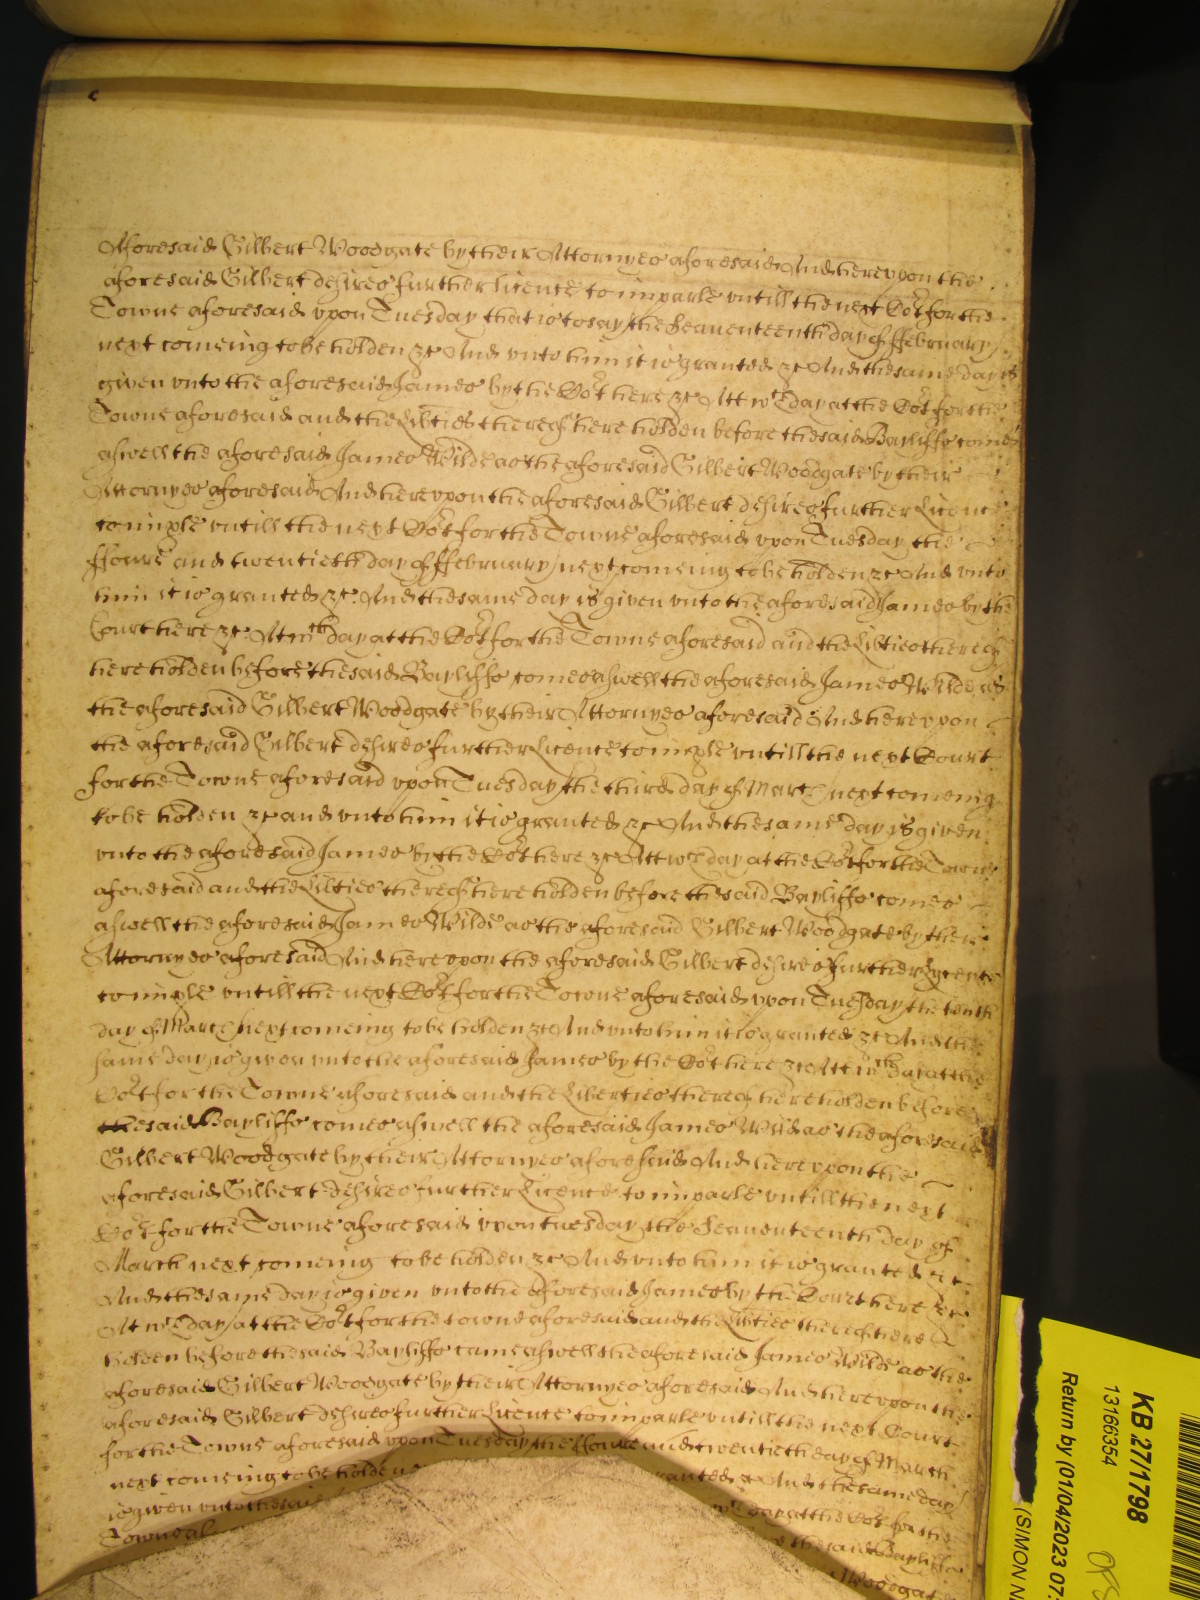 Aforesaid Gilbert Woodgate by their Attornyes aforesaid And hereupon the
aforesaid Gilbert desires further licence to imparle vntill the next Cot for the
Towne aforesaid vpon Tuesday that is to say the Seauenteenth day of ffebruary
next comeing to be holden &c And vnto him it is granted &c And the same day is
given vnto the aforesaid James by the Cot here &c Att wch day at the Cot for the
Towne aforesaid and the Libties thereof here holden before the said Bayliffs comes
aswell the aforesaid James Wilde as the aforesaid Gilbert Woodgate by their
Attornyes aforesaid And herevpon the aforesaid Gilbert desires further Licence
to imple vntill the next Cot for the Towne aforesaid vpon Tuesday the
ffoure and twentieth day of ffebruary next comeing to be holden &c And vnto
him it is granted &c And the same day is given vnto the aforesaid James by the
Court here &c At wch day at the Cot for the Towne aforesaid and the Libties thereof
here holden before the said Bayliffs comes aswell the aforesaid James Wilde as
the aforesaid Gilbert Woodgate by their Attornyes aforesaid And herevpon
the aforesaid Gilbert desires further Licence to imple vntill the next Court
for the Towne aforesaid vpon Tuesday the third day of March next comeing
to be holden &c and vnto him it is granted &c And the same day is given
vnto the aforesaid James by the Cot here &c Att wch day at the Cot for the Towne
aforesaid and the Libties thereof here holden before the said Bayliffs comes
aswell the aforesaid James Wilde as the aforesaid Gilbert Woodgate by their
Attornyes aforesaid And herevpon the aforesaid Gilbert desires further Lycence
to imple vntill the next Cot for the Towne aforesaid vpon Tuesday the tenth
day of March next comeing to be holden &c And vnto him it is granted &c And the
same day is given vnto the aforesaid James by the Cot here &c Att wch day at the
Cot for the Towne aforesaid and the Liberties thereof here holden before
the said Bayliffs comes aswell the aforesaid James Wild as the aforesaid
Gilbert Woodgate by their Attornyes aforesaid And herevpon the
aforesaid Gilbert desires further Licence to imparle vntill the next
Cot for the Towne aforesaid vpon tuesday the Seauenteenth day of
March next comeing to be holden &c And vnto him it is granted &c
And the same day is given vnto the aforesaid James by the Court here &c
At wch day at the Cot for the towne aforesaid and the Libties thereof here
holden before the said Bayliffs came aswell the aforesaid James Wilde as the
aforesaid Gilbert Woodgate by their Attornyes aforesaid And herevpon the
aforesaid Gilbert desires further Licence to imparle vntill the next Court
for the Towne aforesaid vpon Tuesday the ffoure and twentieth day of March
next comeing to be holden granted &c And the same day
is given vnto the said wch day at the Cot for the
Towne the said Bayliffs
Woodgate
KB 27/1798
13166354
Return by (01/04/2023 07:
(SIMON N